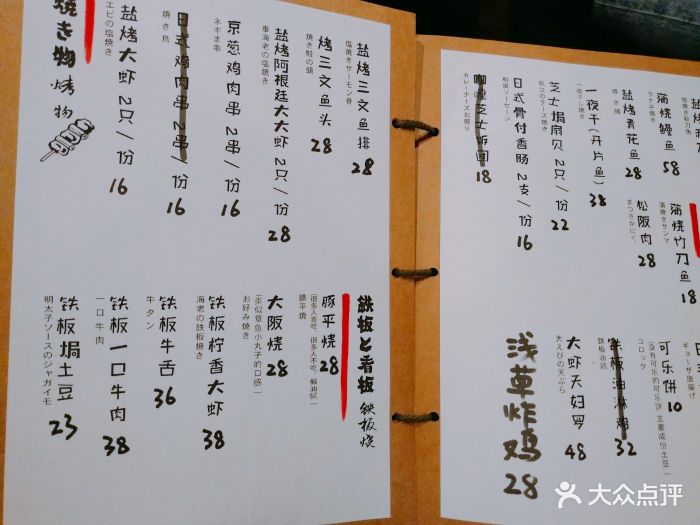 焼き物 烤物
エビの塩焼き
盐烤大虾 2只/份 16
焼き鳥
日式鸡肉串 2串/份 16
ネギま串
京葱鸡肉串 2串/份 16
車海老の塩焼き
盐烤阿根廷大大虾 2只/份 28
焼き鮭の頭
烤三文鱼头 28
塩焼きサーモン骨
盐烤三文鱼排 28
鉄板と看板 铁板烧
(很多人喜吃, 很多人不吃, 偏油腻)
豚平焼
豚平烧 28
(类似章鱼小丸子的口感)
お好み焼き
大阪烧 28
海老の鉄板焼き
铁板柠香大虾 38
牛タン
铁板牛舌 36
一口牛肉
铁板一口牛肉 38
明太子ソースのジャガイモ
铁板焗土豆 23
ウナギ焼き
蒲烧鳗鱼 58
焼き鯖
盐烤青花鱼 28
一夜干し焼き
一夜干(开片鱼) 38
帆立のチーズ焼き
芝士焗扇贝 22
和風ソーセージ
日式骨付香肠 2支/份 16
カレーチーズお握り
咖喱芝士饭团 18
蒲焼きサンマ
蒲烧竹刀鱼 18
松阪肉 28
ギョーザ唐揚げ
コロッケ
(没有可乐的可乐饼 主要成份土豆)
可乐饼 10
鉄板油鶏
铁板油淋鸡 32
大えびの天ぷら
大虾天妇罗 48
浅草炸鸡 28
大众点评